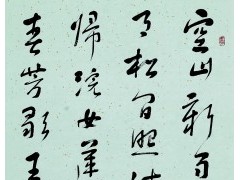 空山新雨
月松間照
歸浣女蓮
春芳歇王